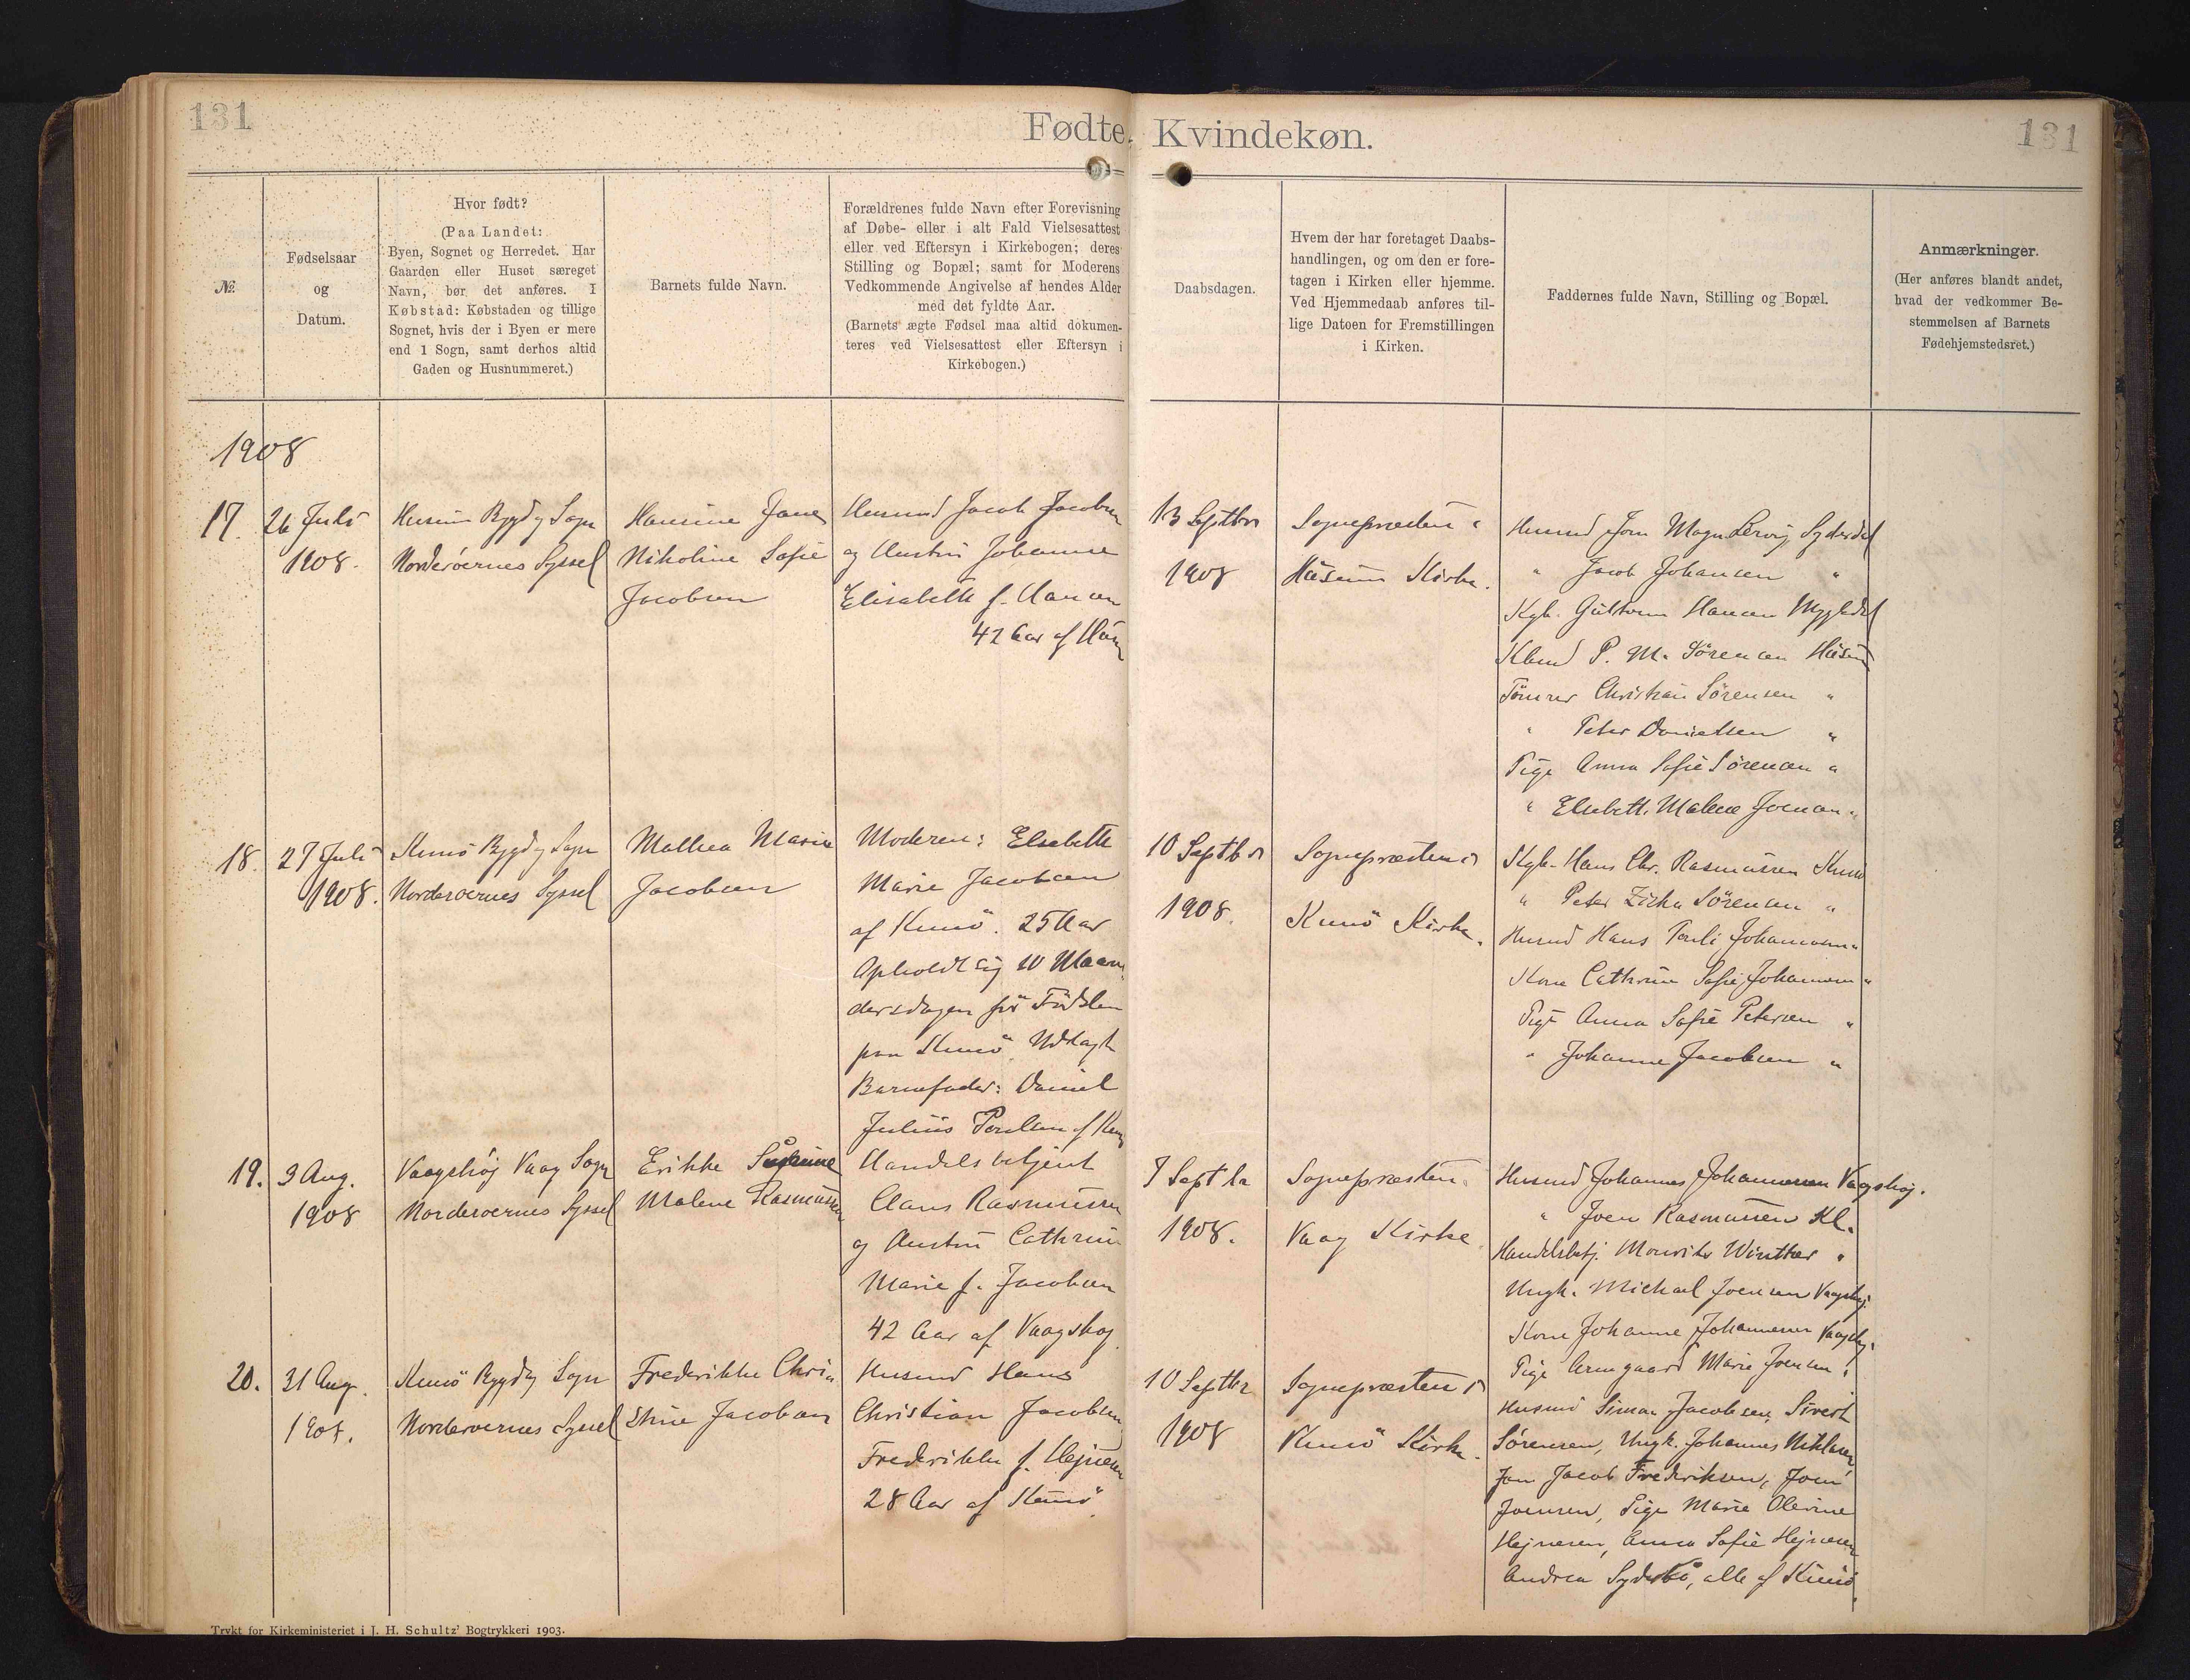 131
Fødte, Kvindekøn.
131
№
Fødselsaar
og
Datum.
Hvor født?
(Paa Landet:
Byen, Sognet og Herredet. Har
Gaarden eller Huset særeget
Navn, bør det anføres. I
Købstad: Købstaden og tillige
Sognet, hvis der i Byen er mere
end 1 Sogn, samt derhos altid
Gaden og Husnummeret.)
Barnets fulde Navn.
Forældrenes fulde Navn efter Forevisning
af Døbe- eller i alt Fald Vielsesattest
eller ved Eftersyn i Kirkebogen; deres
Stilling og Bopæl; samt for Moderens
Vedkommende Angivelse af hendes Alder
med det fyldte Aar.
(Barnets ægte Fødsel maa altid dokumen-
teres ved Vielsesattest eller Eftersyn i
Kirkebogen.)
Daabsdagen.
Hvem der har foretaget Daabs-
handlingen, og om den er fore-
tagen i Kirken eller hjemme.
Ved Hjemmedaab anføres til-
lige Datoen for Fremstillingen
i Kirken.
Faddernes fulde Navn, Stilling og Bopæl.
Anmærkninger.
(Her anføres blandt andet,
hvad der vedkommer Be-
stemmelsen af Barnets
Fødehjemstedsret.)
1908
17.
26 Juli
1908.
Husum Bygd og Sogn
Norderöernes Syssel
Hansine Jane
Nikoline Sofie
Jacobsen
Husmd Jacob Jacobsen
og Hustru Johanne
Elisabeth f. Hansen
42 Aar af
13 Septbr
1908
Sognepræsten i
Husum Kirke.
Husmd Magn. Lervig
" Jacob Johansen "
Kgb. Hansen Mygledal
P. M. Sörensen Husum
Tömrer Christian Sörensen "
" Peter Danielsen "
Pige Anna Sofie Sörensen "
" Elsebeth Malene Joensen "
18.
27 Juli
1908.
Kunö Bygd og Sogn
Norderoernes Syssel
Mathea Marie
Jacobsen
Moderen: Elsebeth
Marie Jacobsen
af Kunö. 25 Aar
Opholdt sig 10 Maane-
dersdagen för Födslen
paa Kunö. Udlagt
Barnefader: Daniel
Julius Poulsen af
10 Septbr
1908.
Sognepræsten i
Kunö Kirke.
Kgb. Hans Chr. Rasmussen Kunö
" Peter Zicha Sörensen "
Husmd Hans Pauli Johannesen "
Kone Cathrine Sofie Johannesen "
Pige Anna Sofie Petersen "
" Johanne Jacobsen "
19.
3 Aug.
1908
Vaagshøj Vaag Sogn
Norderoernes Syssel
Erikke
Malene Rasmussen
Handelsbetjent
Claus Rasmussen
og Hustru Cathrine
Marie f. Jacobsen
42 Aar af Vaagshoj
7 Septbr
1908.
Sognepræsten
Vaag Kirke
Husmd Johannes Johannesen Vaagshoj.
" Joen Rasmussen Kl.
Handelsbetj. Mourits Winther "
Ungk. Michael Joensen Vaagshoj
Kone Johanne Johannesen Vaagshoj.
Pige Armgaard Marie Joensen
20.
31 Aug.
1908.
Kunö Bygd og Sogn
Norderoernes Syssel
Frederikke Chri-
stine Jacobsen
Husmd Hans
Christian Jacobsen
Frederikke f. Hejnesen
28 Aar af Kunö.
10 Septbr
1908
Sognepræsten i
Kunö Kirke.
Husmd Simon Jacobsen, Sivert
Sörensen, Ungk. Johannes Niklasen
Jacob Frederiksen, Joen
Joensen, Pige Marie Olevine
Hejnesen, Anna Sofie Hejnesen
Andrea Syderbö, alle af Kunö.
Trykt for Kirkeministeriet i J. H. Schultz' Bogtrykkeri 1903.